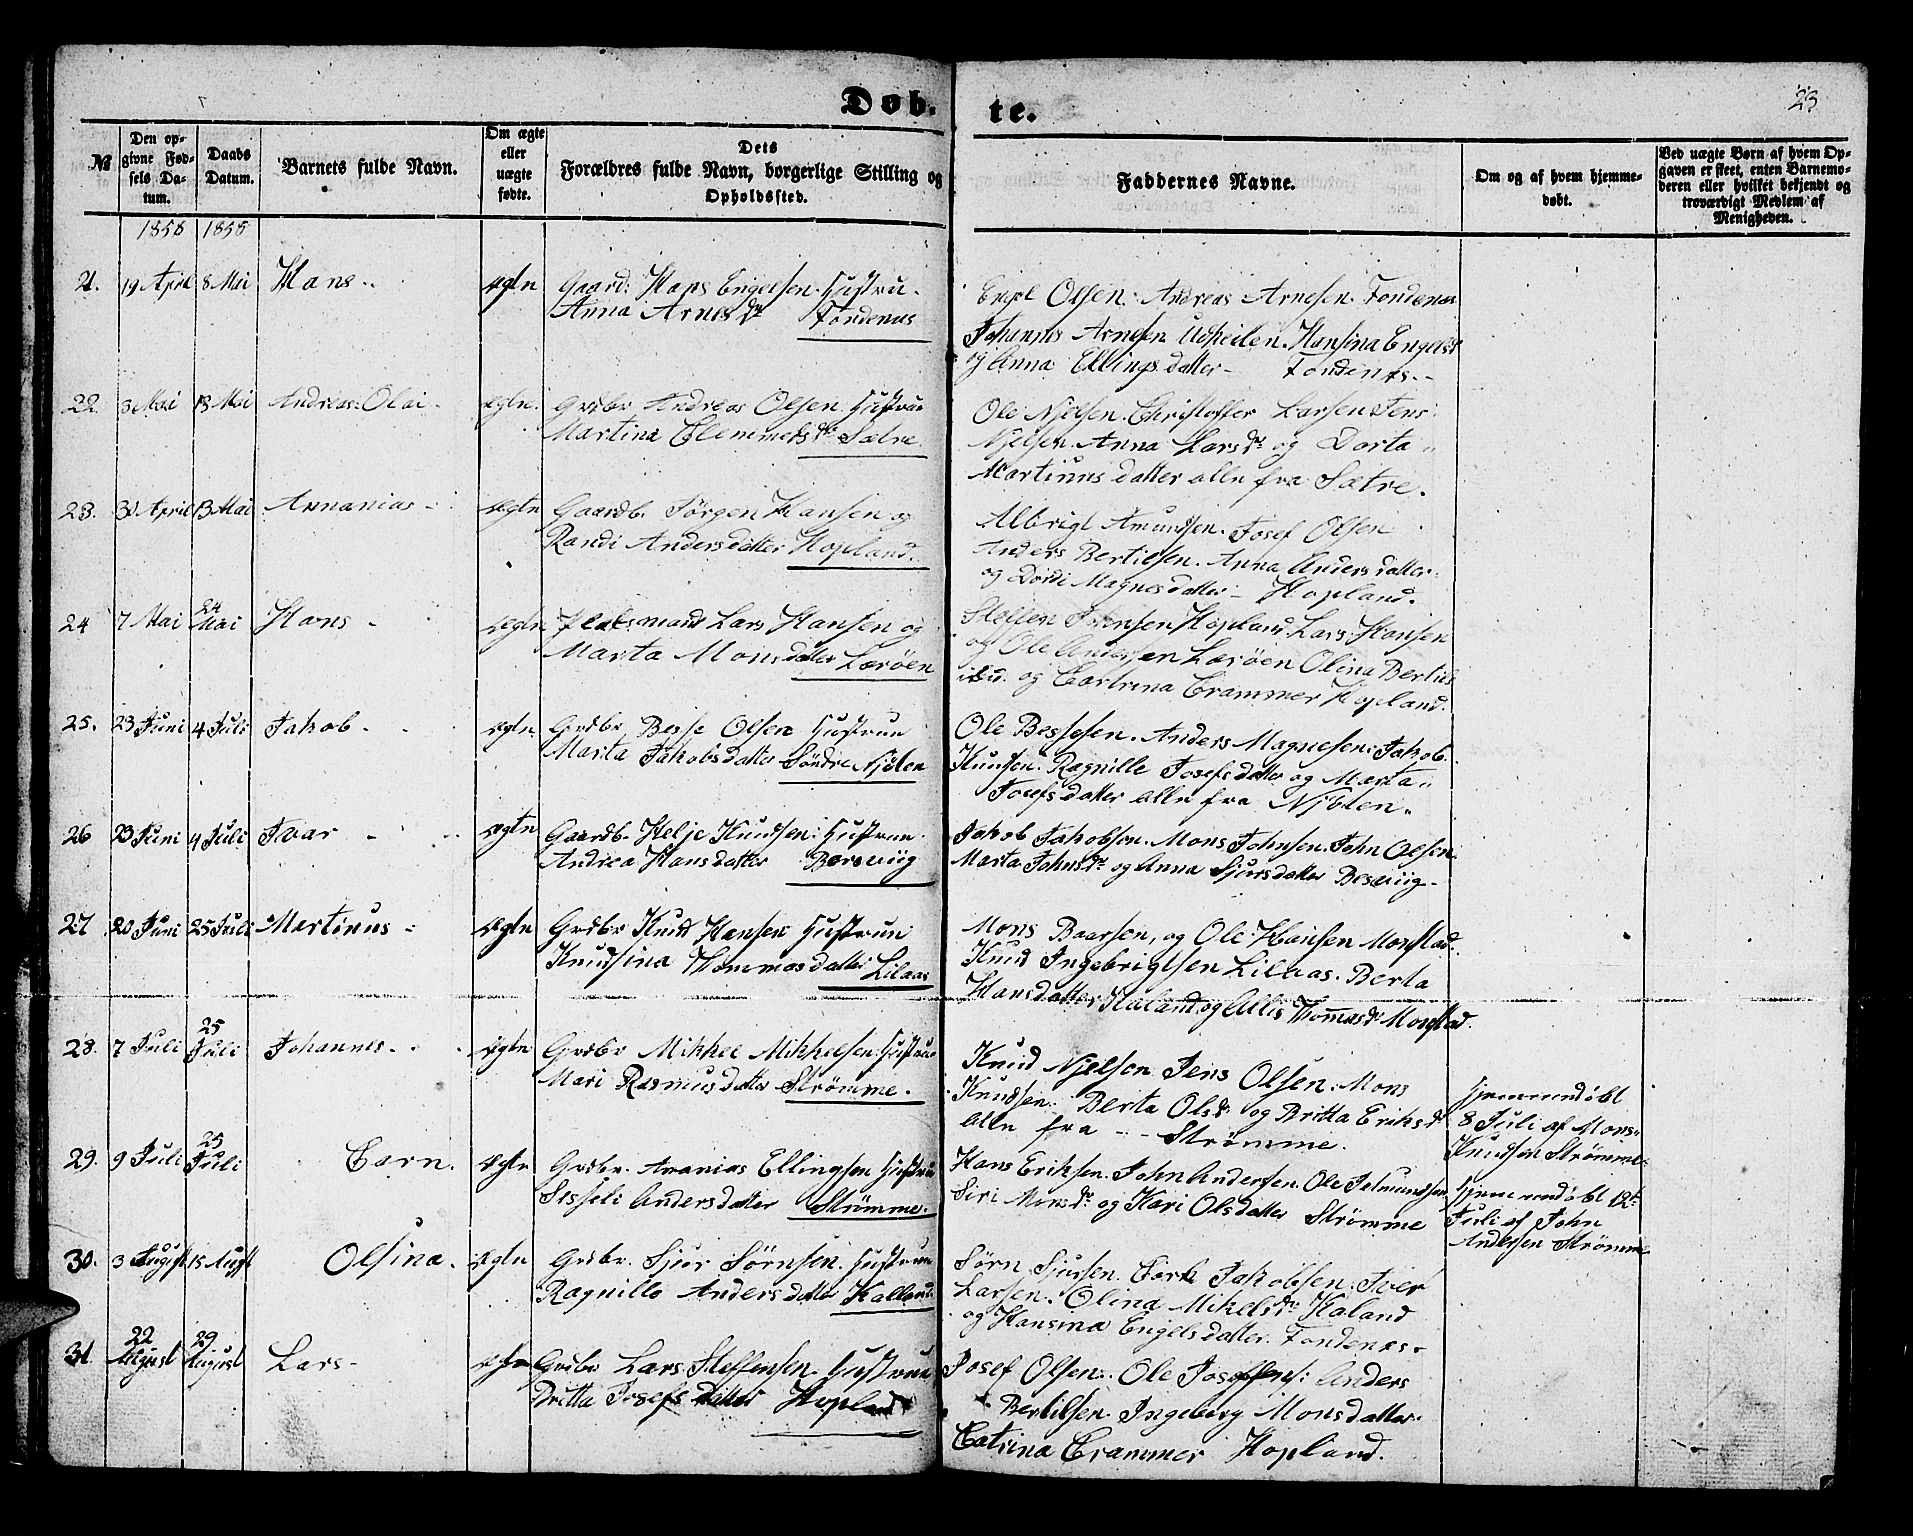 Døb-
te.
23
№
Den op-
givne Fød-
sels Da-
tum.
Daabs
Datum.
Barnets fulde Navn.
Om ægte
eller
uægte
fødte.
Dets
Forældres fulde Navn, borgerlige Stilling og
Opholdssted.
Faddernes Navne.
Om og af hvem hjemme-
døbt.
Ved uægte Børn af hvem Op-
gaven er skeet, enten Barnemo-
deren eller hvilket bekjendt og
troværdigt Medlem af
Menigheden.
1858 1858
21. 19 April 8 Mai Hans ægte Gaard: Hans Engelsen Hustru
Anna Arnesdr Fondenæs
Engel Olsen. Andreas Arnesen. Fondenæs
Johannes Arnesen Hansina Engelsd
og Anna Ellingsdatter - Fondenæs.
22. 3 Mai 13 Mai Andreas Olai ægte. Grdbr Andreas Olsen Hustrue
Martina Clemmetsdr Sætre
Ole Njelsen. Christoffer Larsen Jens
Njelsen. Anna Larsdr og Dorta
Martinusdatter alle fra Sætre.
23. 30 April 13 Mai Annanias ægte Gaardb. Jørgen Hansen og
Randi Andersdatter Hopland.
Albrigt Amundsen. Josef Olsen
Anders Bertielsen. Anna Andersdatter
og Dordi Magnesdatter - Hopland.
24 7 Mai 24 Mai Hans ægte Pladsmand Lars Hansen og
Marta Monsdatter Lærøen
Steffen Hopland. Lars Hansen
og Ole Andersen Lærøen Olina Bertiels
og Cartrina Crammer Hopland.
25. 23 Juni 4 Juli Jakob ægte Grdbr Besse Olsen Hustrue
Marta Jakobsdatter Søndre Njøten
Ole Bessesen. Anders Magnesen. Jakob
Knudsen. Ragnille Josefsdatter og Marta
Josefsdatter alle fra Njöten
26 23 Juni 4 Juli Ivar ægte Gaardb. Helje Knudsen: Hustrue
Andrea Hansdatter Beseviig
Jakob Jakobsen. Mons Johnsen. John Olsen.
Marta Johnsdr og Anna Sjursdatter Beseviig
27 20 Juni 25 Juli Martinus ægte Grdbr Knud Hansen Hustrue
Knudsina Thommasdatter Lilaas
Mons Baarsen, og Ole Hansen Monstad.
Knud Ingebrigtsen Lilaas. Berta
Hansdatter Haland og Allis Thomasdr Monstad.
28. 7 Juli 25 Juli Johannes ægte Grdbr Mikkel Mikkelsen: Hustrue
Mari Rasmusdatter Strömme.
Knud Njelsen Jens Olsen. Mons
Knudsen. Berta Olsdr og Britta Eriksdr
alle fra - Strömme.
hjemmedöbt
8 Juli af Mons
Knudsen Strömme
29. 9 Juli 25 Juli Carn. ægte Grdbr. Ananias Ellingsen Hustrue
Sisseli Andersdatter Strömme.
Hans Eriksen. John Andersen. Ole
Siri Monsdr og Kari Olsdatter Strömme
hjemmedöbt 12te
Juli af John
Andersen Strömme
30. 3 August 15 Augst Olsina. ægte Grdbr. Sjur Sörnsen. Hustrue
Ragnille Andersdatter Kalland
Sörn Sjursen. Jakobsen. Iver
Larsen. Olina Mikelsdr Haland
og Hansina Engelsdatter Fondenæs.
31 22 August 29 August Lars ægte Grdbr Lars Steffensen Hustrue
Britta Josefsdatter Hopland
Josef Olsen. Ole Josefsens: Anders
Bertilsen Ingeborg Monsdatter.
Catrina Crammer Hopland.